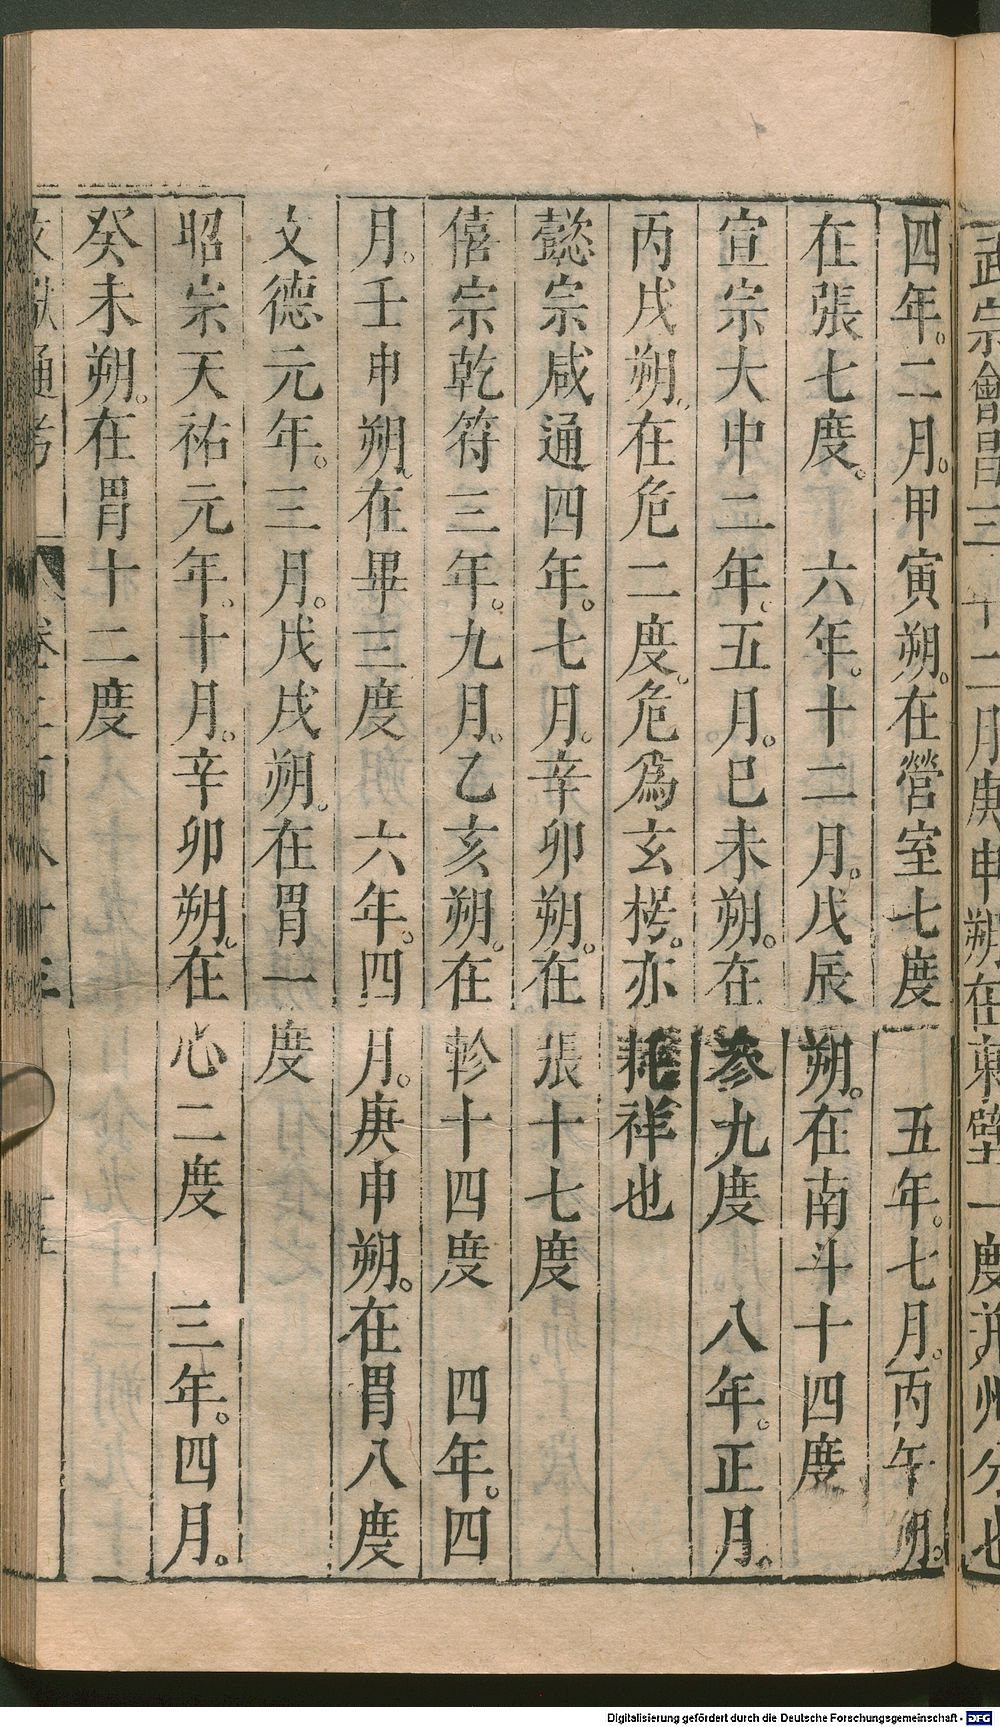 武宗會昌三 十二月庚申朔在東壁一度并州分也
四年。二月。甲寅朔。在營室七度 五年。七月。丙午朔。
在張七度。 六年。十二月。戊辰朔。在南斗十四度
宣宗大中二年。五月。己未朔。在參九度 八年。正月。
丙戌朔。在危二度。危爲玄枵。亦耗祥也
懿宗咸通四年。七月。辛卯朔。在張十七度
僖宗乾符三年。九月。乙亥朔。在軫十四度 四年。四
月。壬申朔。在畢三度 六年。四月。庚申朔。在胃八度
文德元年。三月。戊戌朔。在胃一度
昭宗天祐元年。十月。辛卯朔。在心二度 三年。四月。
癸未朔。在胃十二度
文獻通考 卷二百八十三 十五
Digitalisierung gefördert durch die Deutsche Forschungsgemeinschaft - DFG